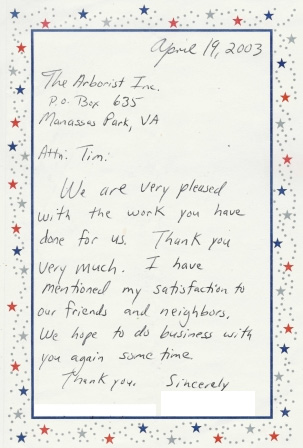 April 19, 2003
The Arborist Inc.
P.O. Box 635
Manassas Park, VA
Attn: Tim:
We are very pleased
with the work you have
done for us. Thank you
very much. I have
mentioned my satisfaction to
our friends and neighbors.
We hope to do business with
you again some time.
Thank you. Sincerely